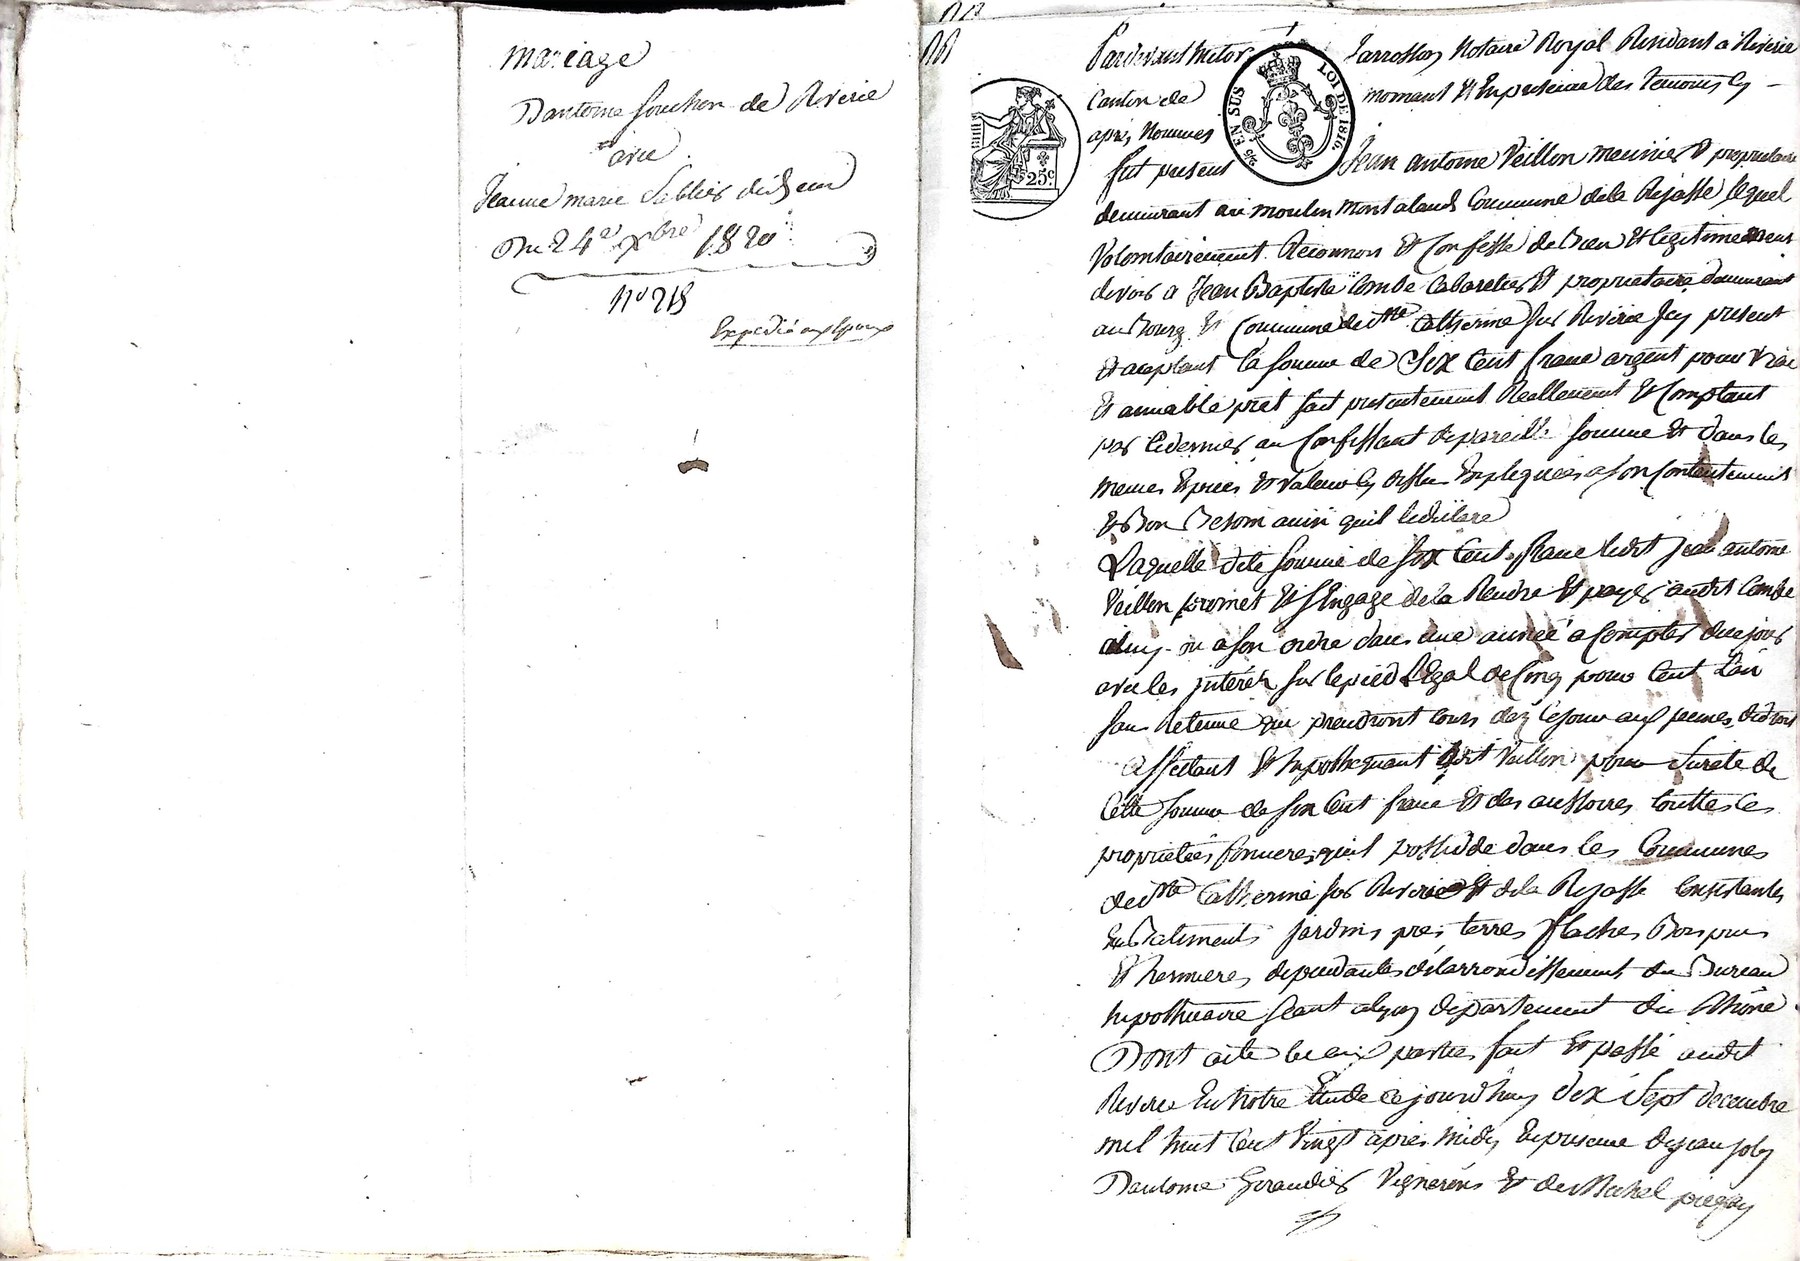 mariage
D'antoine Souchon de Riverie
avec
Jeanne marie
Du 24e xbre 1820
No 218
Expedié aux epoux
Pardevant Mtor Jarrosson Notaire Royal Residant a Riverie
Canton de mornant Et En presence des temoins cy
après Nommés
fut present Jean antoine Veillon meunier Et proprietaire
demeurant au moulin montaland Commune de la Rajasse, lequel
Volontairement Reconnoit Et Confesse de bien Et legitimement
devoir a Jean Baptiste Combe Cabaretier Et proprietaire demeurant
au Bourg Et Commune de Ste Catherine sur Riverie Icy present
Et acceptant la somme de Six Cent franc argent pour vrai
Et amiable prêt fait presentement Reellement Et Comptant
par le dernier au Confessant de pareille somme Et dans les
memes Espèces Et valeur cy dessus Expliquées a son Contentement
Et Bon Besoin ainsi qu'il le déclare
Laquelle dite somme de Six Cent franc ledit Jean antoine
Veillon promet Et s'Engage de la Rendre Et payer audit Combe
ou a son ordre dans une année a Compter de ce jour
avec les jntérêts sur le pied Légal de Cinq pour Cent L'an
sans Retenue qui prendront cours dez ce jour aux peines de droit
Affectant Et hypothequant ledit Veillon pour Sureté de
Cette somme de Six Cent franc Et des acessoires touttes les
proprietées foncieres qu'il possedde dans les Communes
de Ste Catherine sur Riverie Et de la Rajasse Consistantes
En Batiments jardins prés terres Bois pins
Et hermieres dependantes de l'arrondissement du Bureau
hipothecaire seant a Lyon département du Rhône
Dont acte lu aux parties fait Et passé audit
Riverie En Notre Etude ce jourd'huy dix Sept decembre
mil huit Cent Vingt après Midy En presence de jean joly
D'antoine Giraudier Vignerons Et de Michel
LOI DE 1816.
EN SUS
25c